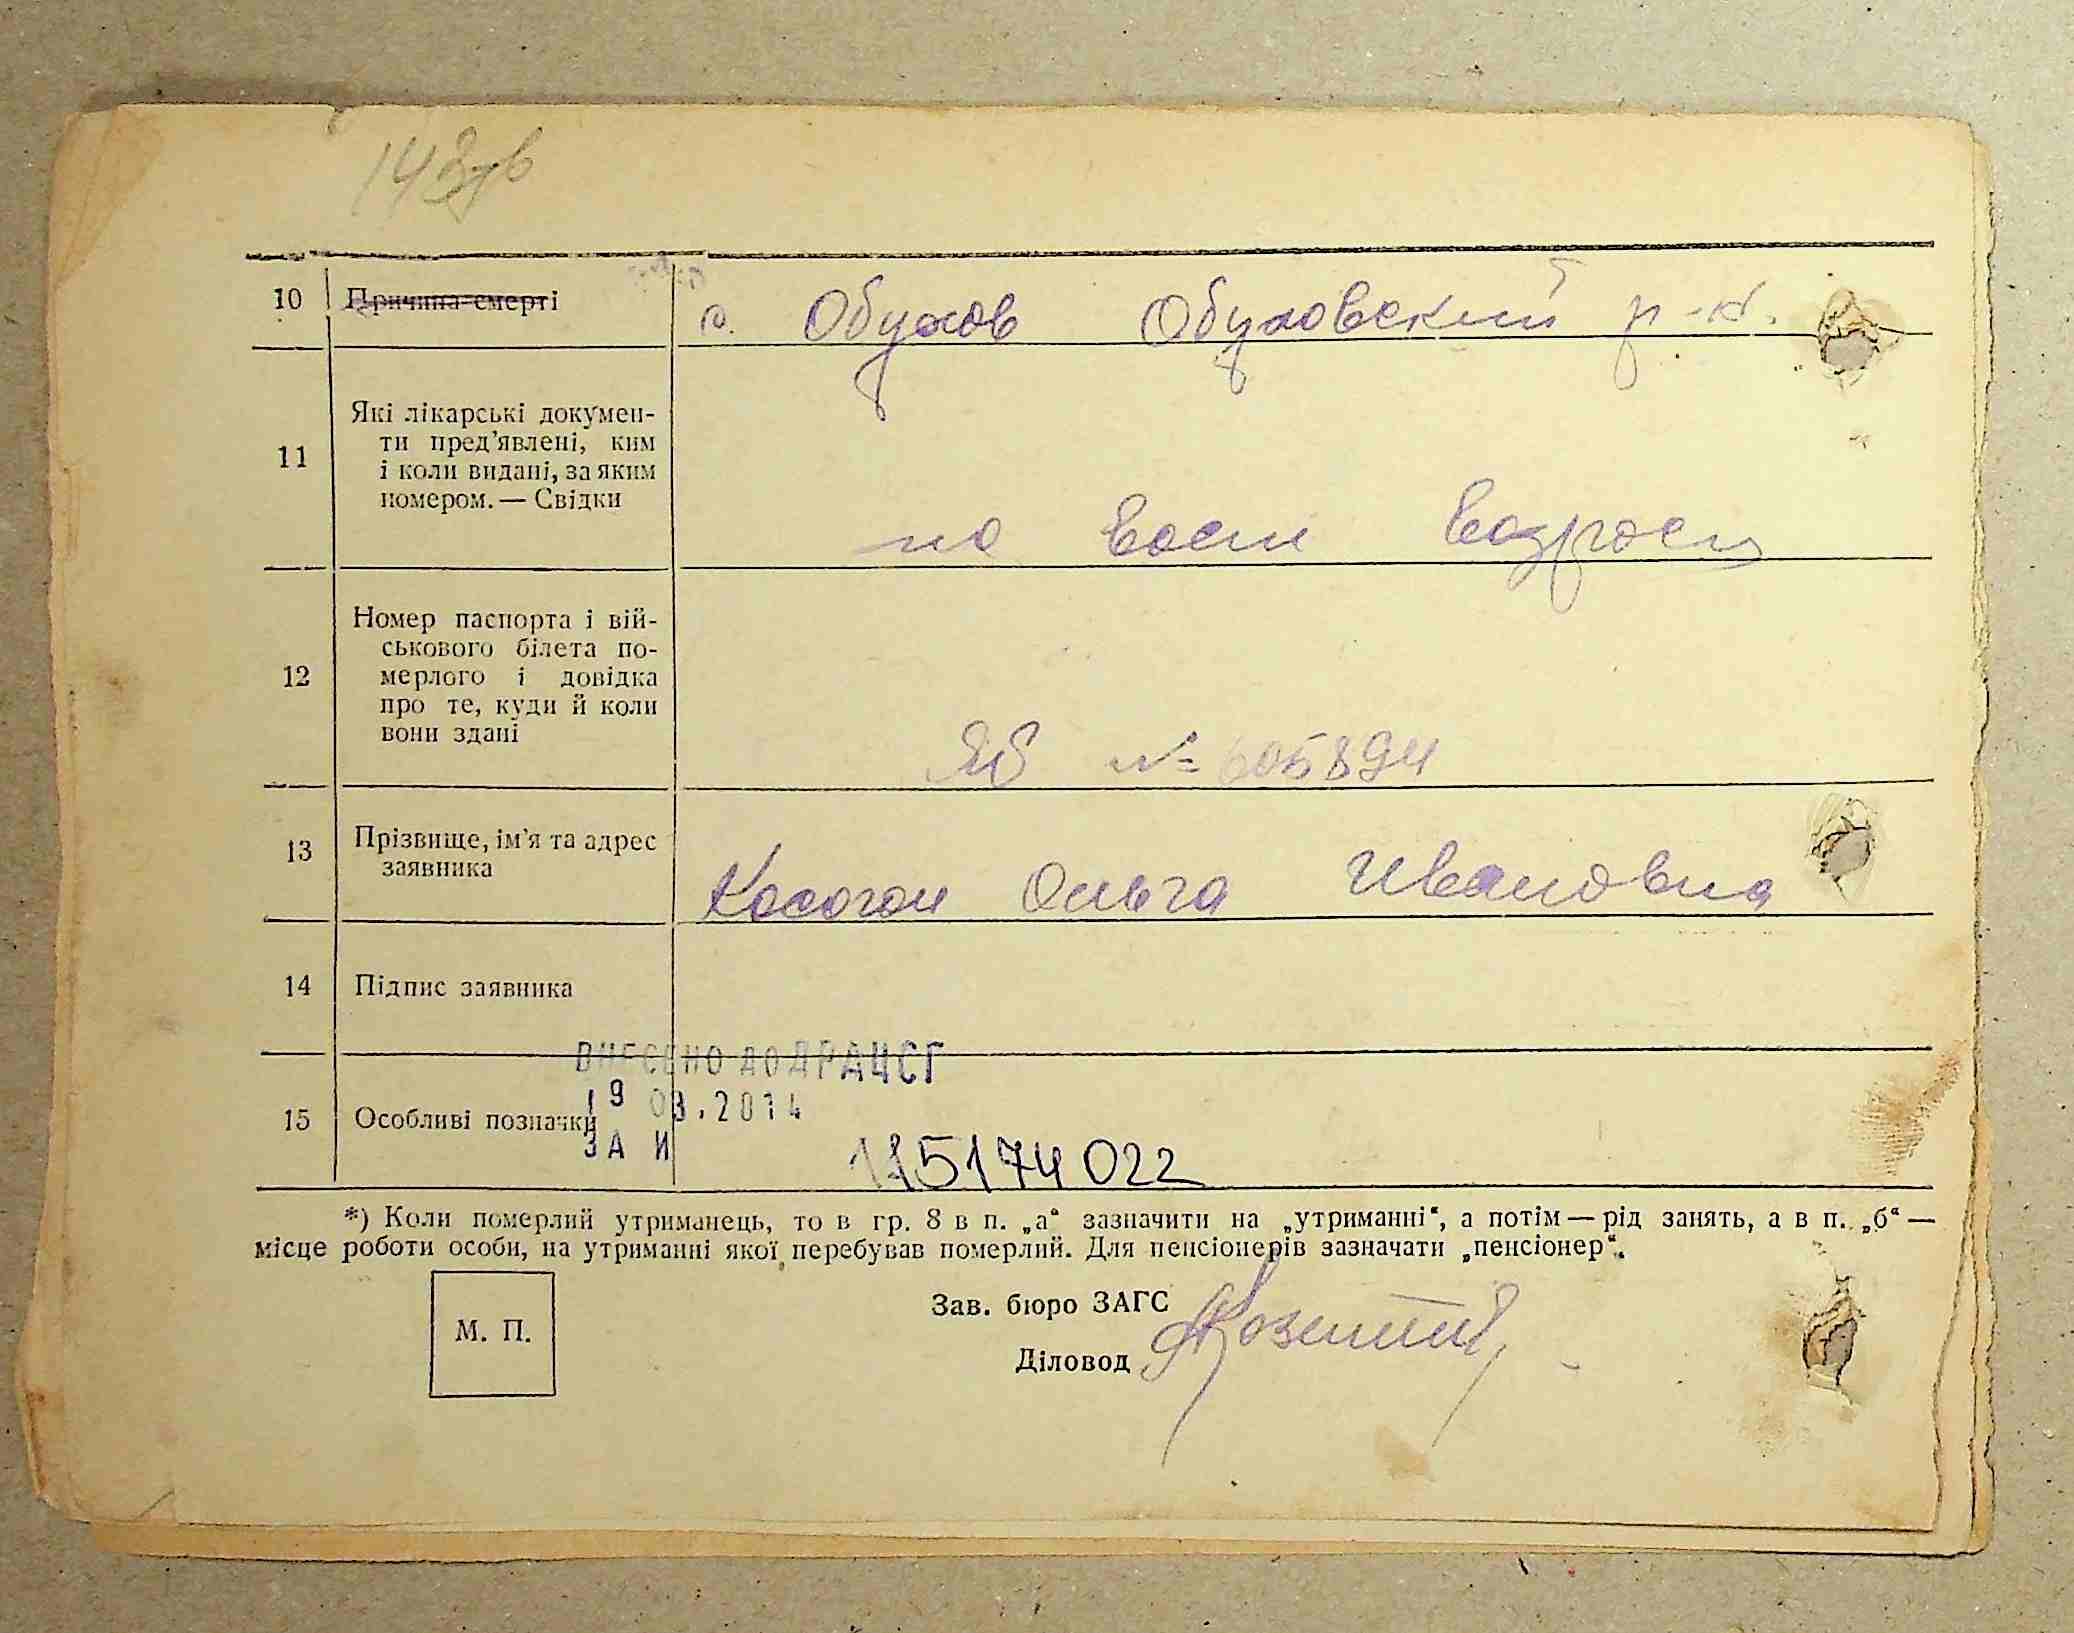 10 Причина смерті с. Обухов Обуховский р-н.
11 Які лікарські докумен-
ти пред'явлені, ким
і коли видані, за яким
номером. — Свідки
по восст возрасту
12 Номер паспорта і вій-
ськового білета по-
мерлого і довідка
про те, куди й коли
вони здані
№ 605894
13 Прізвище, ім'я та адрес
заявника
Косогон Ольга Ивановна
14 Підпис заявника
ВНЕСЕНО ДО ДРАЦСГ
19 03.2014
15 Особливі позначки
ЗА И
115174022
*) Коли померлий утриманець, то в гр. 8 в п. „а“ зазначити на „утриманні“, а потім — рід занять, а в п. „б“ —
місце роботи особи, на утриманні якої перебував померлий. Для пенсіонерів зазначати „пенсіонер“.
Зав. бюро ЗАГС
М. П.
Діловод